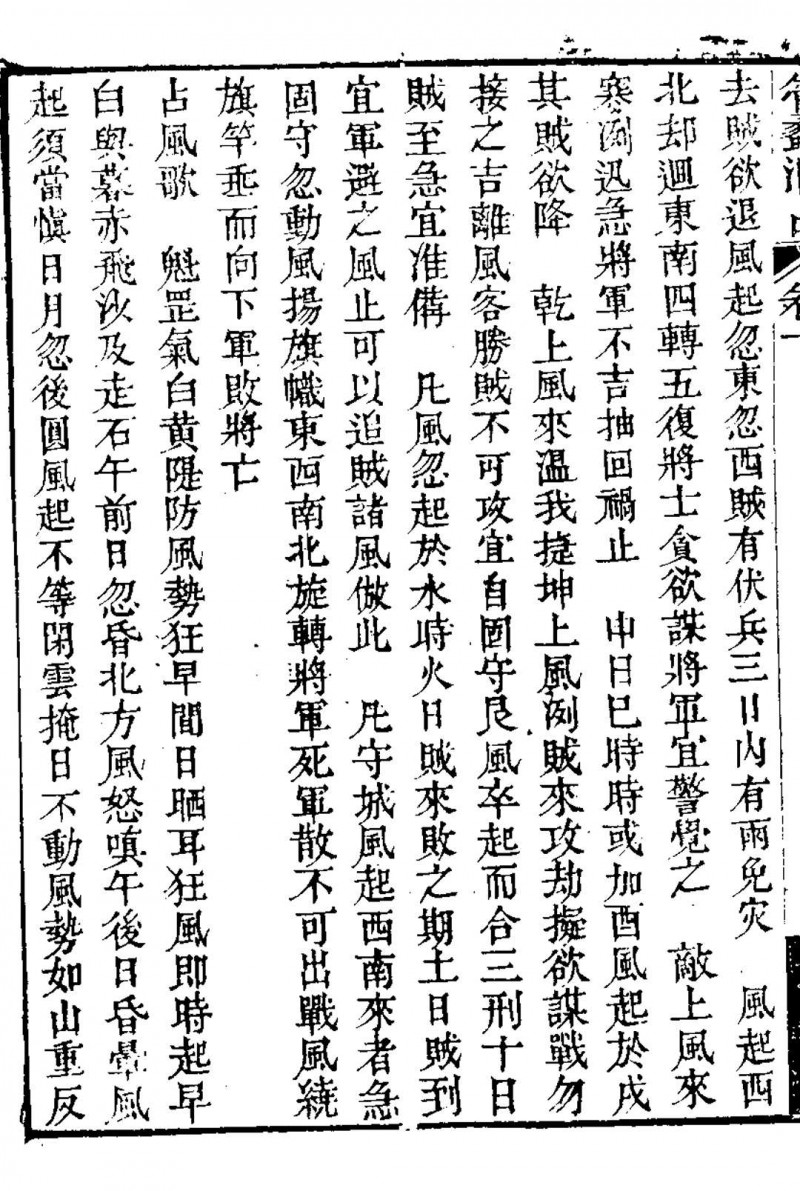 管蠡滙占 卷一
去賊欲退風起忽東忽西賊有伏兵三日內有雨免灾　風起西
北却迴東南四轉五復將士貪欲謀將軍宜警覺之　敵上風來
寒冽迅急將軍不吉抽回禍止　申日巳時時或加酉風起於戌
其賊欲降　乾上風來溫我捷坤上風冽賊來攻劫擬欲謀戰勿
接之吉離風客勝賊不可攻宜自固守艮風卒起而合三刑十日
賊至急宜准備　凡風忽起於水時火日賊來敗之期土日賊到
宜軍避之風止可以追賊諸風倣此　凡守城風起西南來者急
固守忽動風揚旗幟東西南北旋轉將軍死軍散不可出戰風繞
旗竿垂而向下軍敗將亡
占風歌　魁罡氣白黃隄防風勢狂早間日晒耳狂風即時起早
白與暮赤飛沙及走石午前日忽昏北方風怒嗔午後日昏暈風
起須當慎日月忽後圓風起不等閑雲掩日不動風勢如山重反